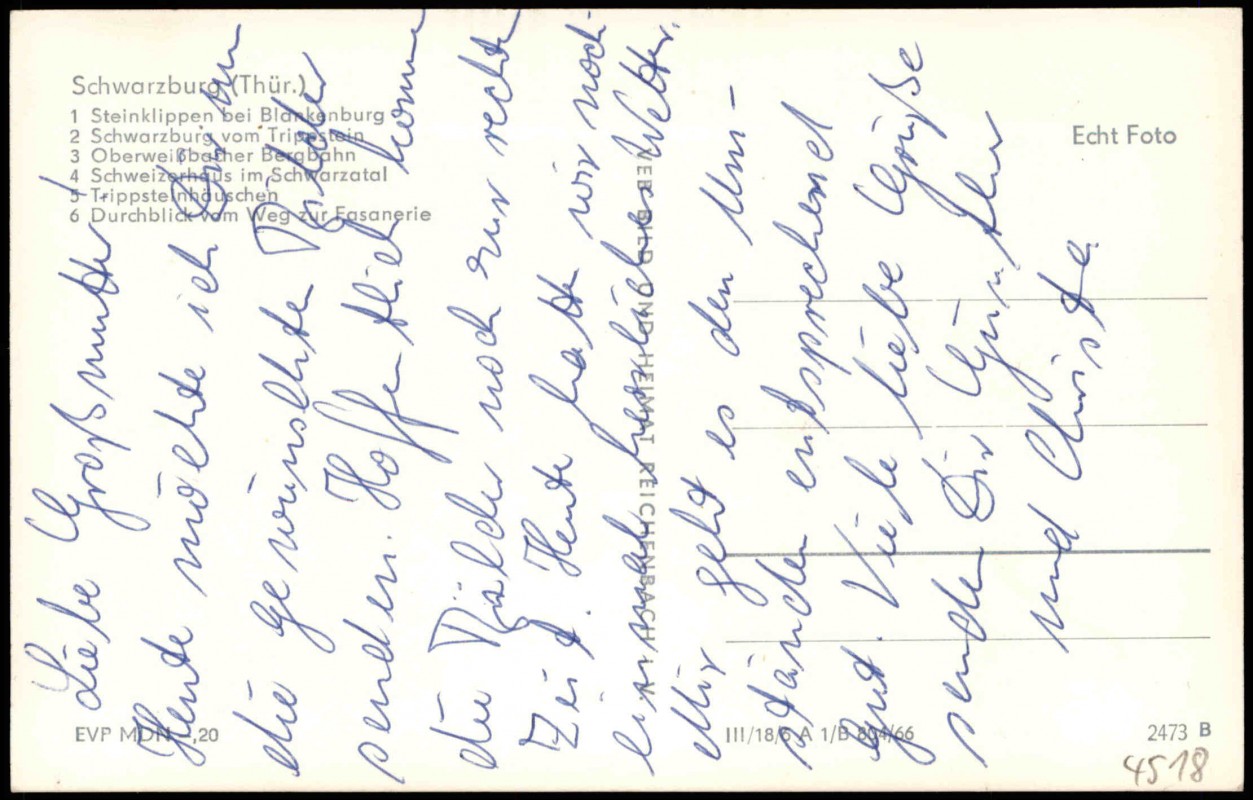 Schwarzburg (Thür.)
1 Steinklippen bei Blankenburg
2 Schwarzburg vom Trippstein
3 Oberweißbacher Bergbahn
4 Schweizerhaus im Schwarzatal
5 Trippsteinhäuschen
6 Durchblick vom Weg zur Fasanerie
Echt Foto
Liebe Großmutter!
Heute möchte ich Dir nun
die gewünschten Bilder
senden. Hoffentlich komm
die Bilder noch zur rechten
Zeit. Heute hatten wir noch
einmal herrliches Wetter.
Mir geht es den Um-
ständen entsprechend
gut. Viele liebe Grüße
senden Dir Günther
und Christa
VEB BILD UND HEIMAT REICHENBACH I. V.
EVP MDN 0,20
III/18/6 A 1/B 804/66
2473 B
4518